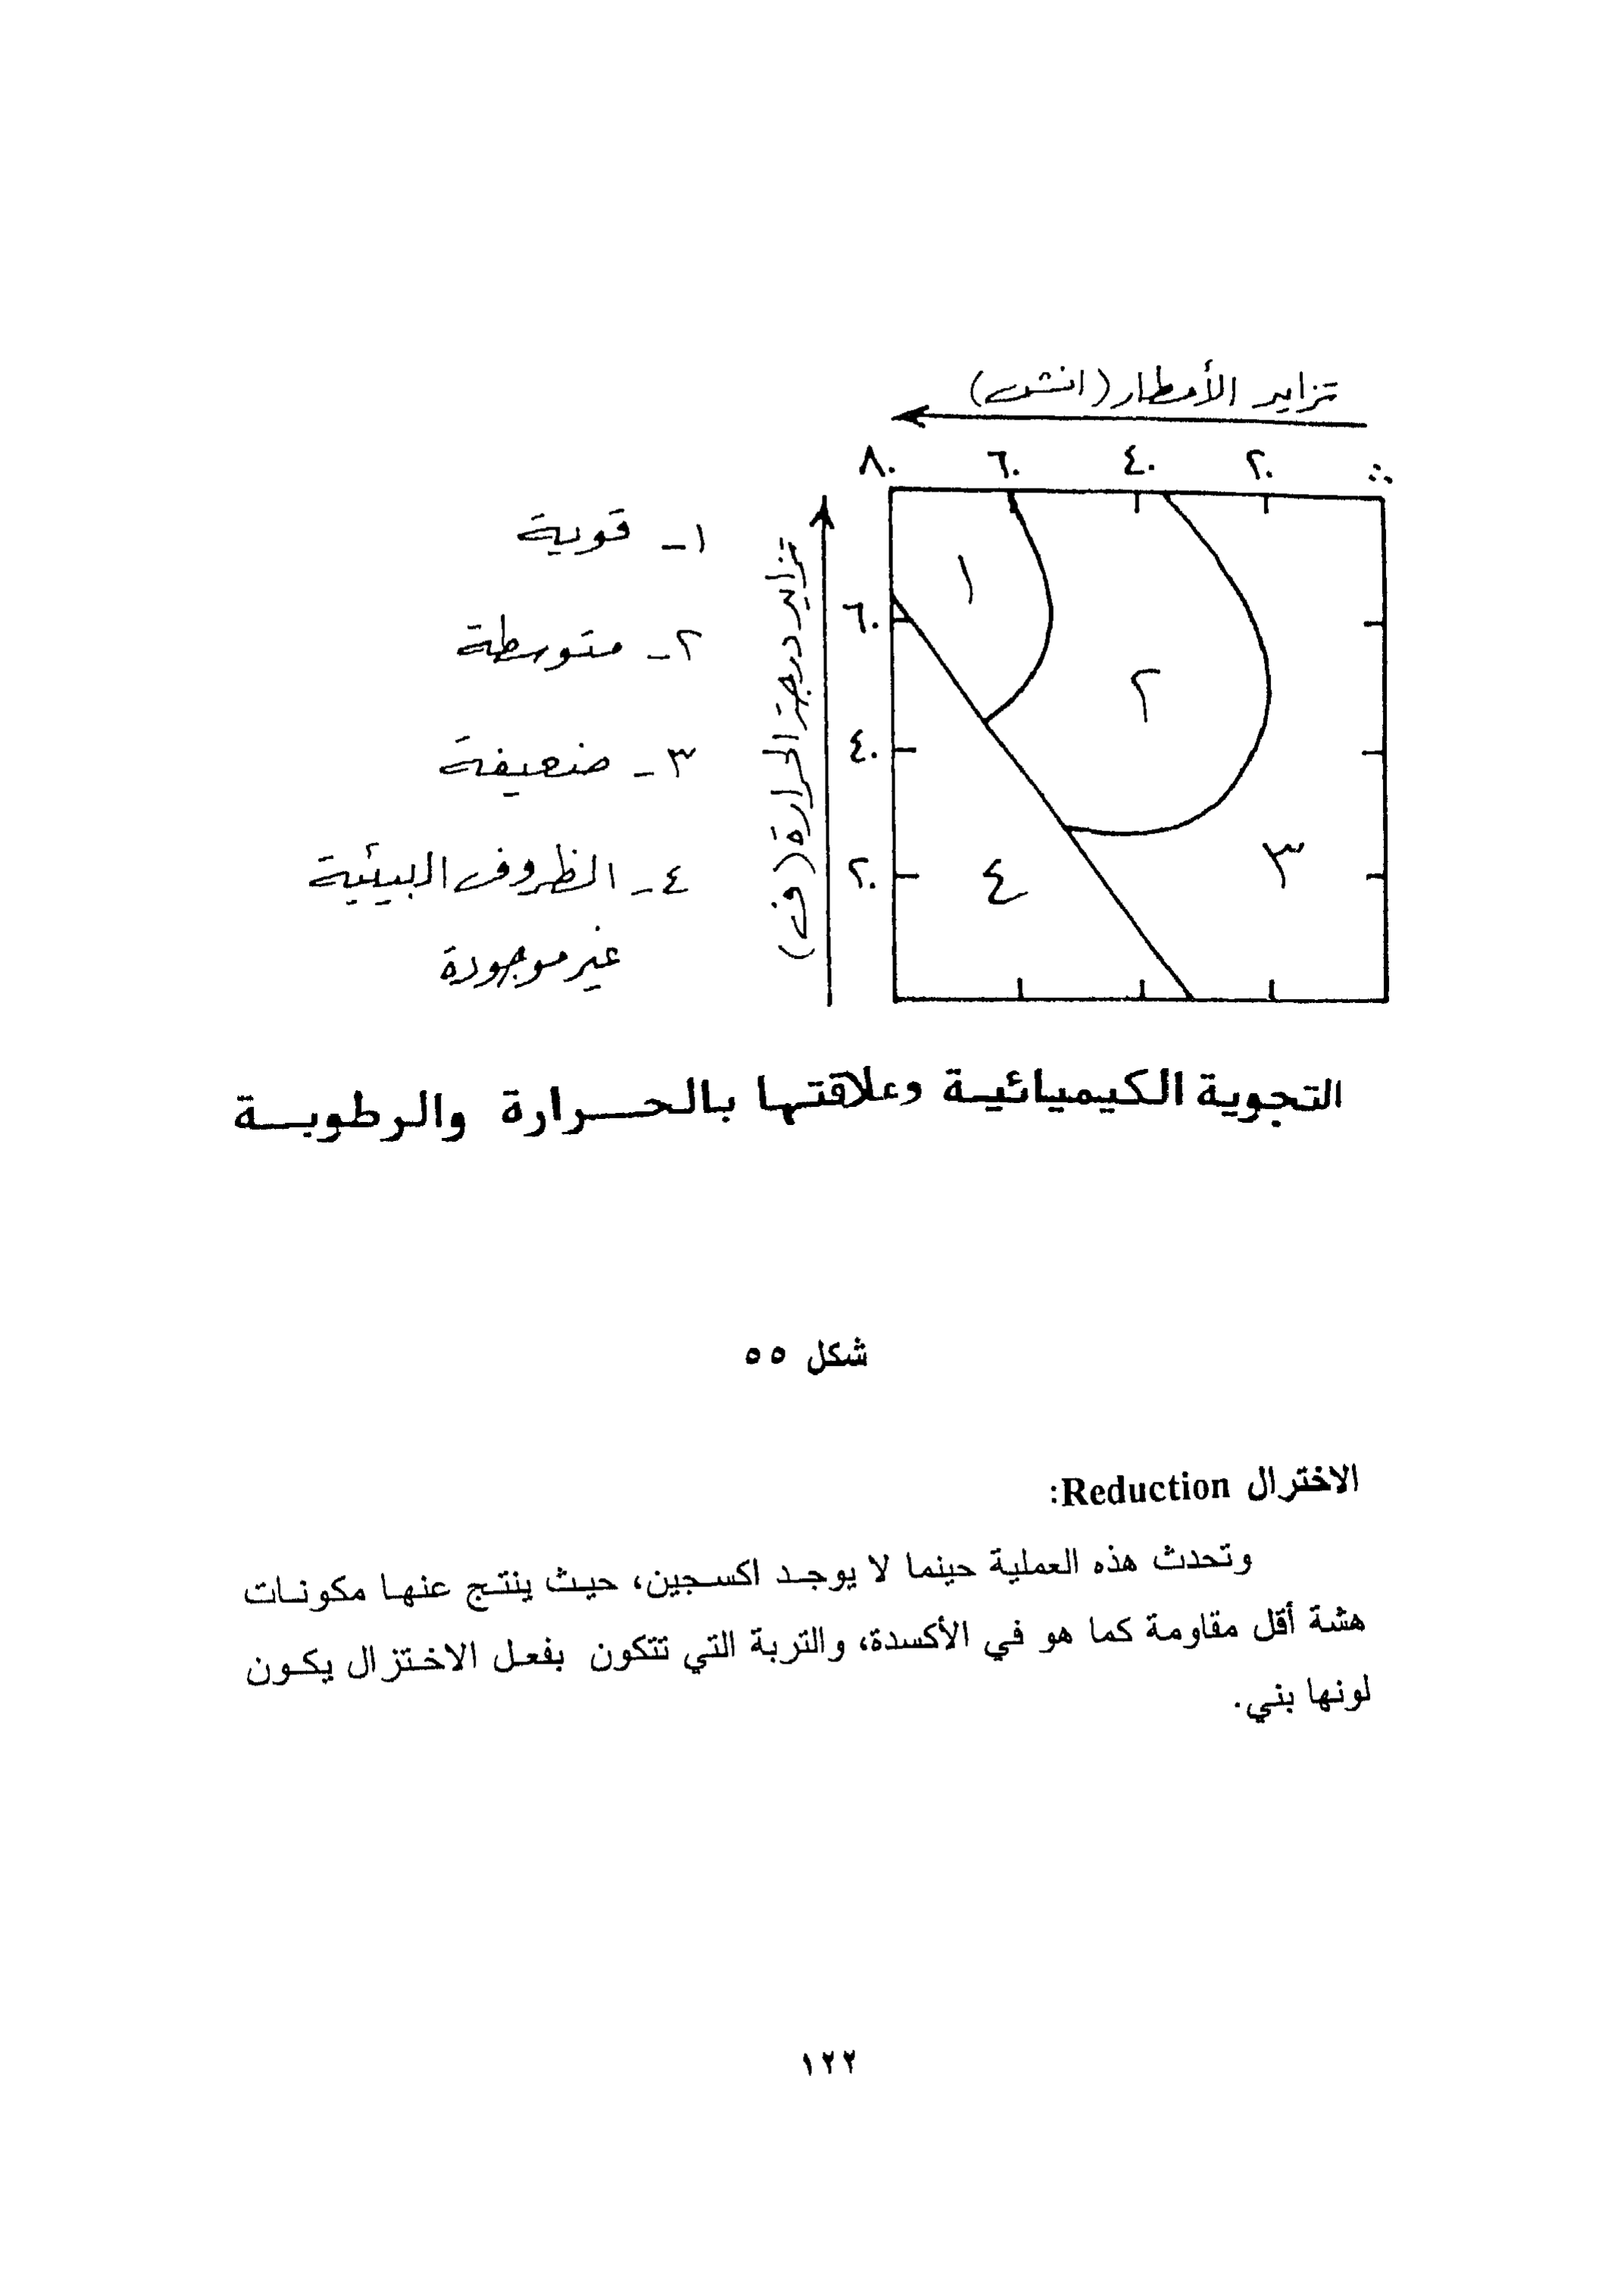 تزايد الأمطار (انش)
٨٠ ٦٠ ٤٠ ٢٠
تزايد درجة الحرارة (ف)
٦٠
٤٠
٢٠
١
٢
٣
٤
١- قوية
٢- متوسطة
٣- ضعيفة
٤- الظروف البيئية
غير موجودة
التجوية الكيميائية وعلاقتها بالحرارة والرطوبة
شكل ٥٥
الاختزال Reduction:
وتحدث هذه العملية حينما لا يوجد اكسجين، حيث ينتج عنها مكونات
هشة أقل مقاومة كما هو في الأكسدة، والتربة التي تتكون بفعل الاختزال يكون
لونها بني.
١٢٢